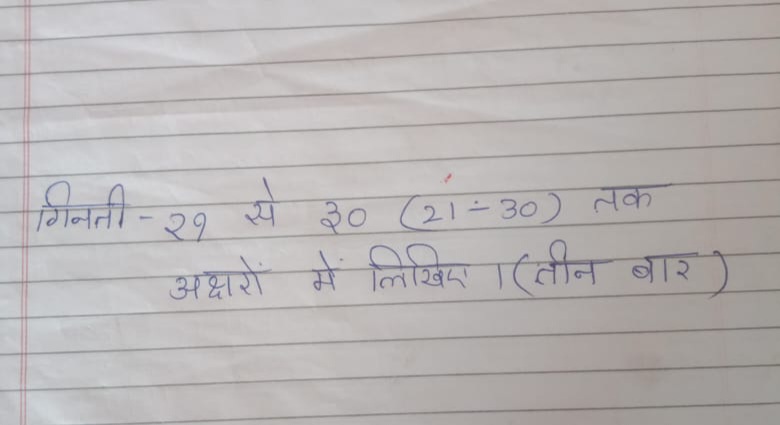 गिनती - २१ से ३० (21-30) तक
अक्षरों में लिखिए । (तीन बार)